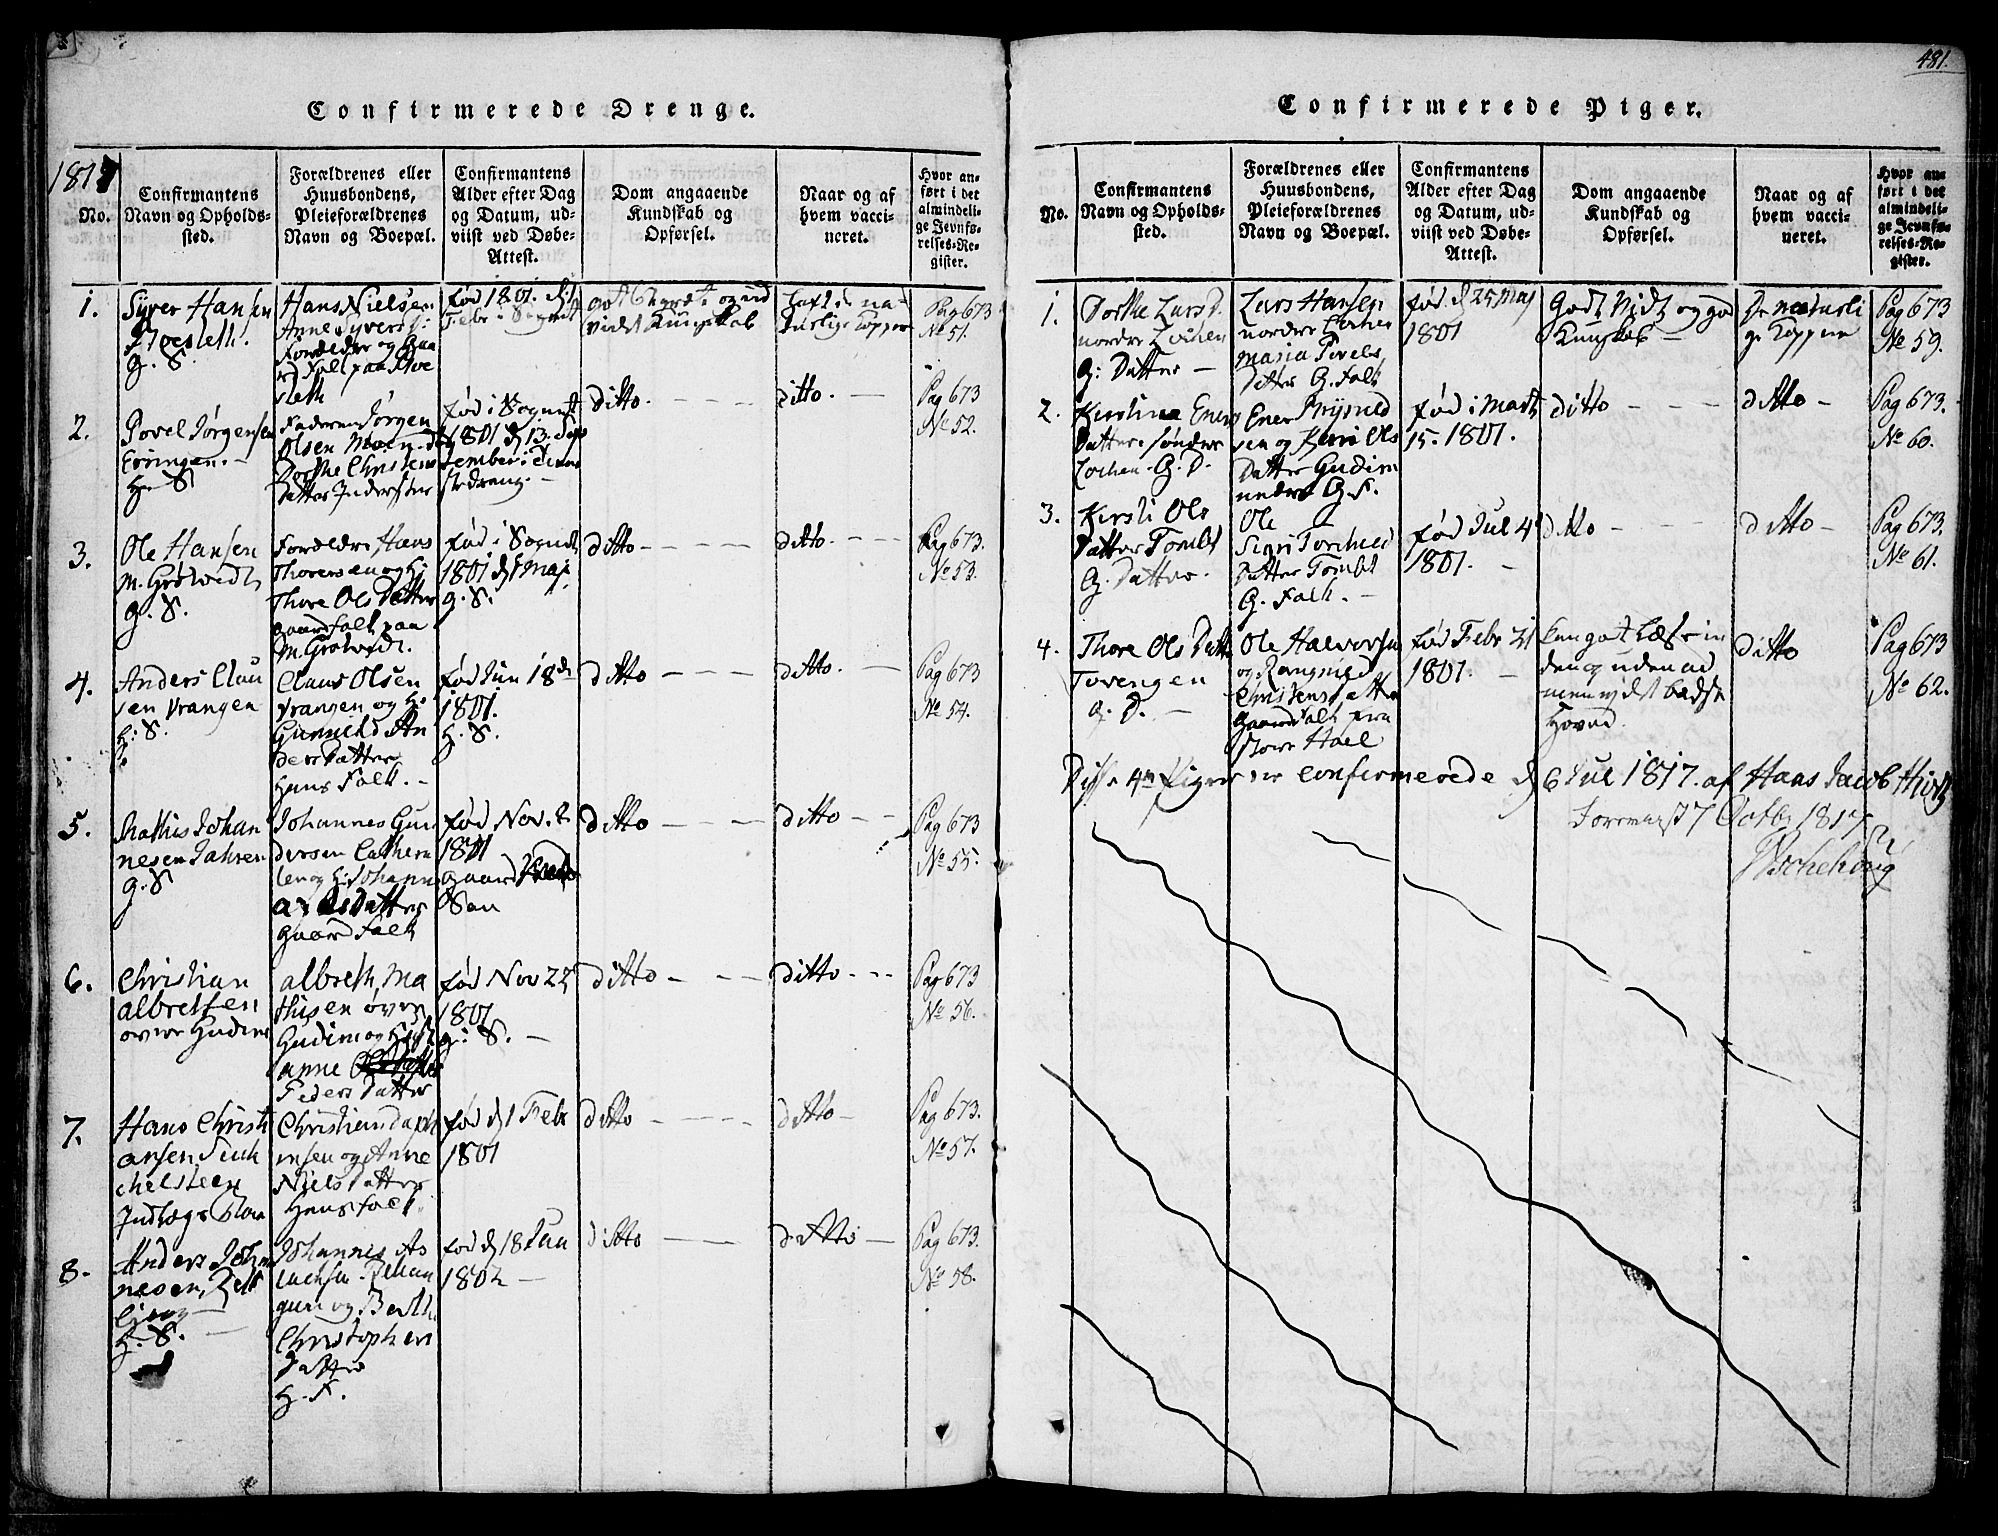 481.
Confirmerede Drenge.
1817
No.
Confirmantens
Navn og Opholds-
sted.
Forældrenes eller
Huusbondens,
Pleieforældrenes
Navn og Boepæl.
Confirmantens
Alder efter Dag
og Datum, ud-
viist ved Døbe-
Attest.
Dom angaaende
Kundskab og
Opførsel.
Naar og af
hvem vacci-
neret.
Hvor an-
ført i det
almindeli-
ge Jevnfø-
relses-Re-
gister.
1.
Syver Hansen
G. S.
Hans Nielsen
Anne Syvers D:
Forældre og Gaa
rd Folk paa
født 1801. d.
Febr i Sognet
got og ud
vidst Kunskab
haft de na-
turlige Kopper
Pag 673
No 51.
2.
Povel Jørgensen
H. S.
Faderen Jørgen
Olsen
Dorthe Christens
Datter Inderster
fød i Sognet
1801 d 13. Sep
tember
ditto.
ditto.
Pag 673
No 52.
3.
Ole Hansen
M. Grøtvedt
G. S.
Forældre Hans
Thoresen og H:
Thore Ols Datter
gaard folk paa
M. Grøtvedt.
fød i Sognet
1801 d 1 Maj.
G. S.
ditto
ditto.
Pag 673.
No 53.
4.
Anders Clau
sen Vrangen
H: S.
Claus Olsen
Vrangen og H:
Gunnild An
ders Datter
Huus Folk.
fød Jun 18 de
1801.
H. S.
ditto
ditto.
Pag 673
No 54.
5.
Mathis Johan
nesen Jahren
G. S
Johannes Gun
dersen
len og H: Johanne
Datter
Gaard Folk
fød Nov. 2
1801
gaard
Søn
ditto
ditto
Pag 673
No 55.
6.
Christian
Albretsen
øvre Gudim
Albreth Ma
thisen øvre
Gudim og H:
Anne
Peders Datter
fød Nov 22
1801
G: S.
ditto
ditto.
Pag 673
No 56.
7.
Hans Christi
ansen
chelsteen
Indlægs
Christian
ensen og Anne
Niels Datter
Huusfolk.
fød d 1 Febr
1801
ditto
ditto
Pag 673.
No 57.
8.
Anders Johan
nesen,
H. S.
Johannis As
lachsen
gum og Berthe
Christophers
Datter
H. F.
fød d 18 Jan
1802
ditto
ditto
Pag 673.
No 58.
Confirmerede Piger.
No.
Confirmantens
Navn og Opholds-
sted.
Forældrenes eller
Huusbondens,
Pleieforældrenes
Navn og Boepæl.
Confirmantens
Alder efter Dag
og Datum, ud-
viist ved Døbe-
Attest.
Dom angaaende
Kundskab og
Opførsel.
Naar og af
hvem vacci-
neret.
Hvor an-
ført i det
almindeli-
ge Jevnfø-
relses-Re-
gister.
1.
Dorthe Lars D.
nordre Lochen
G: Datter
Lars Hansen
nordre Lochen
Maria Povels
Datter G. Folk
fød d 25 Maj
1801
Godt Vidt og god
Kunskab
De naturli
ge Koppene
Pag 673
No 59.
2.
Kirstina Eners
Datter: søndre
Lochen. G. D.
Ener Brynild
sen og Kari Ols
Datter Gudim
nedre G. F.
fød i Marts
15. 1801.
ditto
ditto
Pag 673.
No 60.
3.
Kirsti Ols
Datter Tombt
G. Datter.
Ole
Sigri
Datter Tombt
G. Folk.
fød Jul 4
1801.
ditto
ditto
Pag 673.
No 61.
4.
Thore Ols Datter
Tovengen
G. D.
Ole Halvorsen
og Rangnild
Christens Datter
Gaard Folk paa
store Hoel
fød Febr 21
1801.
kan got Læse in
den og uden ad
men
Hoved.
ditto
Pag 673
No 62.
Disse 4re Piger ere confirmerede d 6 Jul 1817. af Hans Jacob
Forevist 7 Octbr 1817